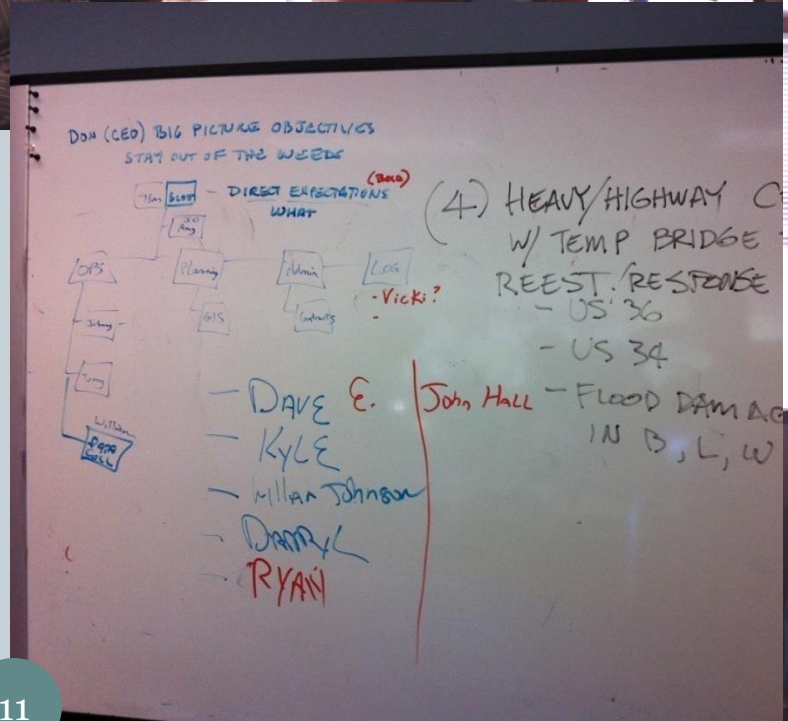 DON (CEO) BIG PICTURE OBJECTIVES
STAY OUT OF THE WEEDS
Tim SCOTT - DIRECT EXPECTATIONS (BOLD)
WHAT
OPS Planning Admin LOG
- Vicki?
-
Johnny
GIS
Contracts
Tony
William
DATA CELL
- DAVE E.
- KYLE
- Willam Johnson
- DARRYL
- RYAN
John HALL
(4) HEAVY/HIGHWAY C
W/ TEMP BRIDGE
REEST./RESPONSE
- US 36
- US 34
- FLOOD DAMAG
IN B, L, W
11